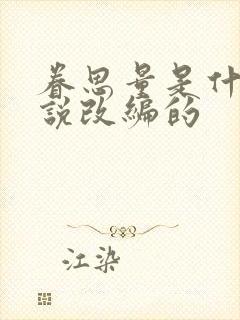 眷思量是什
説改编的
江染